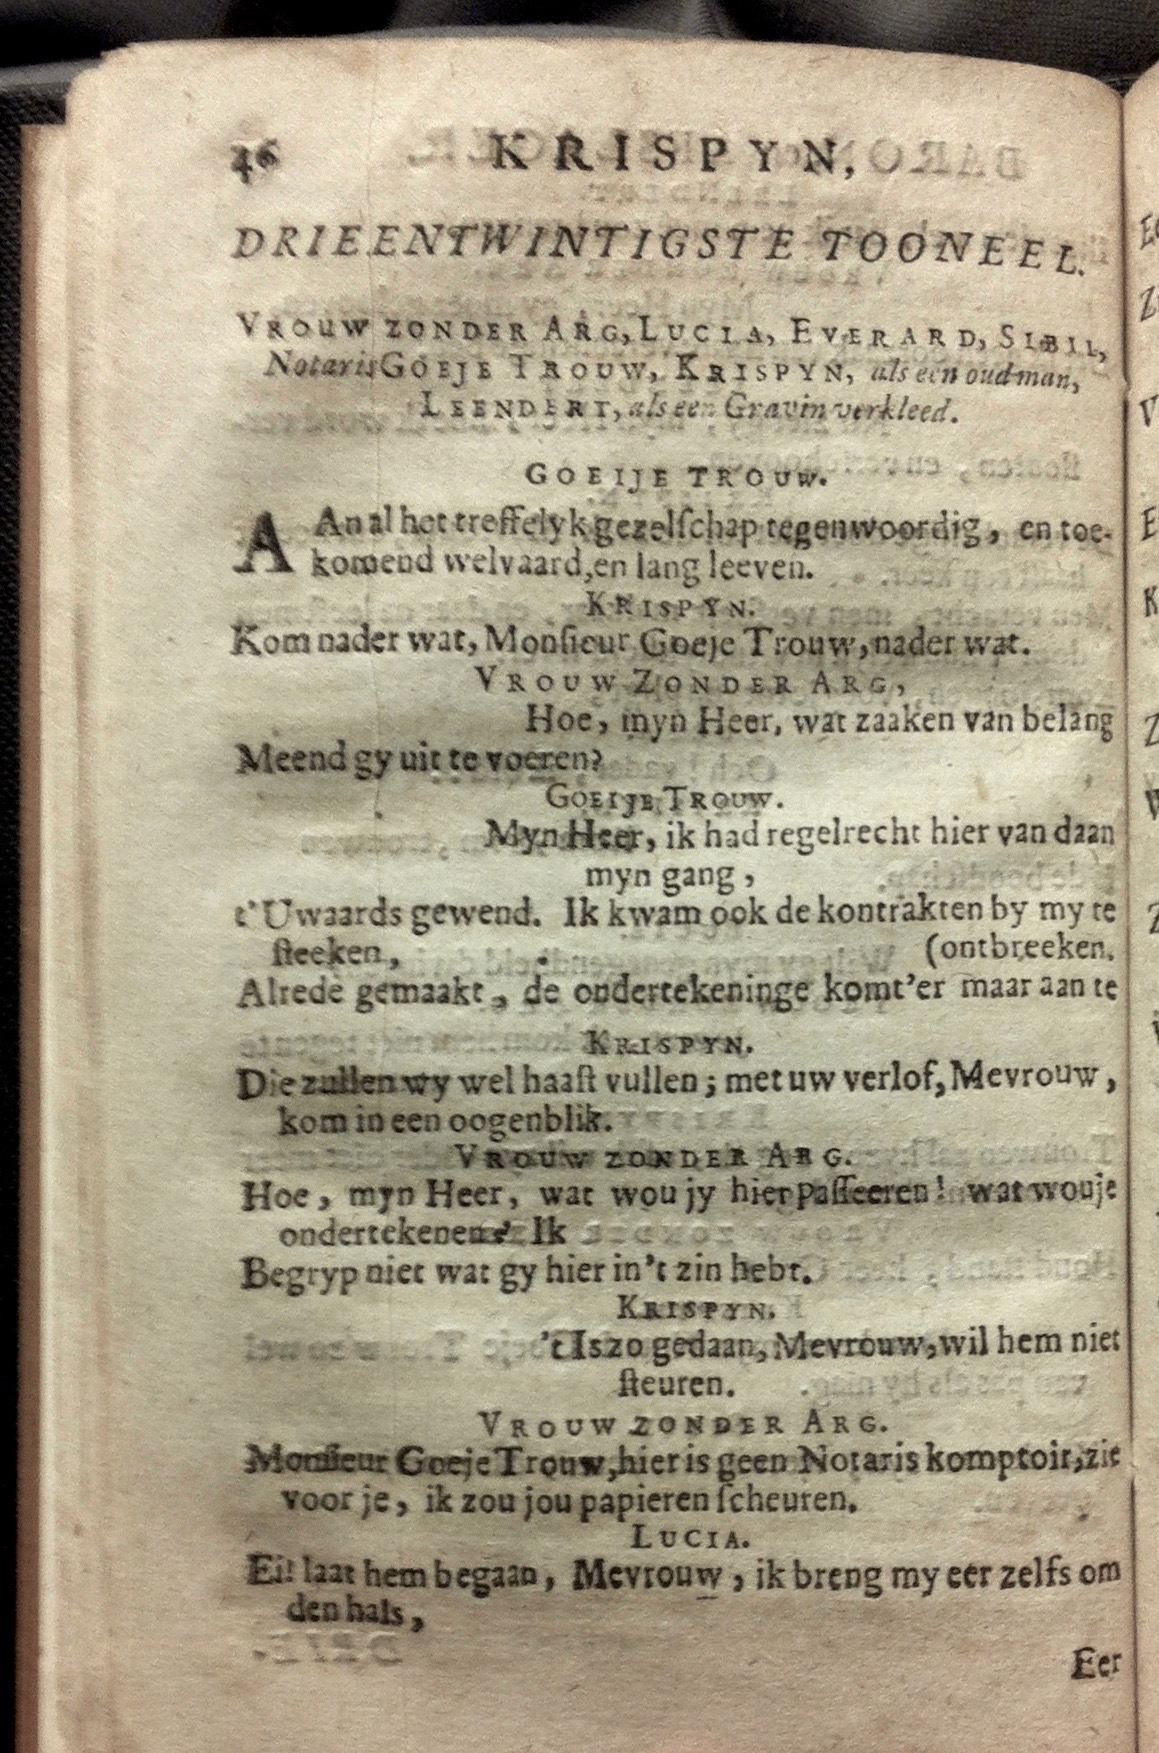 46 KRISPYN,
DRIEENTWINTIGSTE TOONEEL.
VROUW ZONDER ARG, LUCIA, EVERARD, SIBIL,
Notaris GOEJE TROUW, KRISPYN, als een oud man,
LEENDERT, als een Gravin verkleed.
GOEIJE TROUW.
AAn al het treffelyk gezelſchap tegenwoordig, en toe-
komend welvaard, en lang leeven.
KRISPYN.
Kom nader wat, Monſieur Goeje Trouw, nader wat.
VROUW ZONDER ARG,
Hoe, myn Heer, wat zaaken van belang
Meend gy uit te voeren?
GOEIJE TROUW.
Myn Heer, ik had regelrecht hier van daan
myn gang,
t'Uwaards gewend. Ik kwam ook de kontrakten by my te
ſteeken, (ontbreeken.
Alrede gemaakt, de ondertekeninge komt'er maar aan te
KRISPYN.
Die zullen wy wel haaſt vullen; met uw verlof, Mevrouw,
kom in een oogenblik.
VROUW ZONDER ARG.
Hoe, myn Heer, wat wou jy hier paſſeeren! wat wouje
ondertekenen? Ik
Begryp niet wat gy hier in't zin hebt.
KRISPYN.
't Is zo gedaan, Mevrouw, wil hem niet
ſteuren.
VROUW ZONDER ARG.
Monſieur Goeje Trouw, hier is geen Notaris komptoir, zie
voor je, ik zou jou papieren ſcheuren.
LUCIA.
Ei! laat hem begaan, Mevrouw, ik breng my eer zelfs om
den hals,
Eer